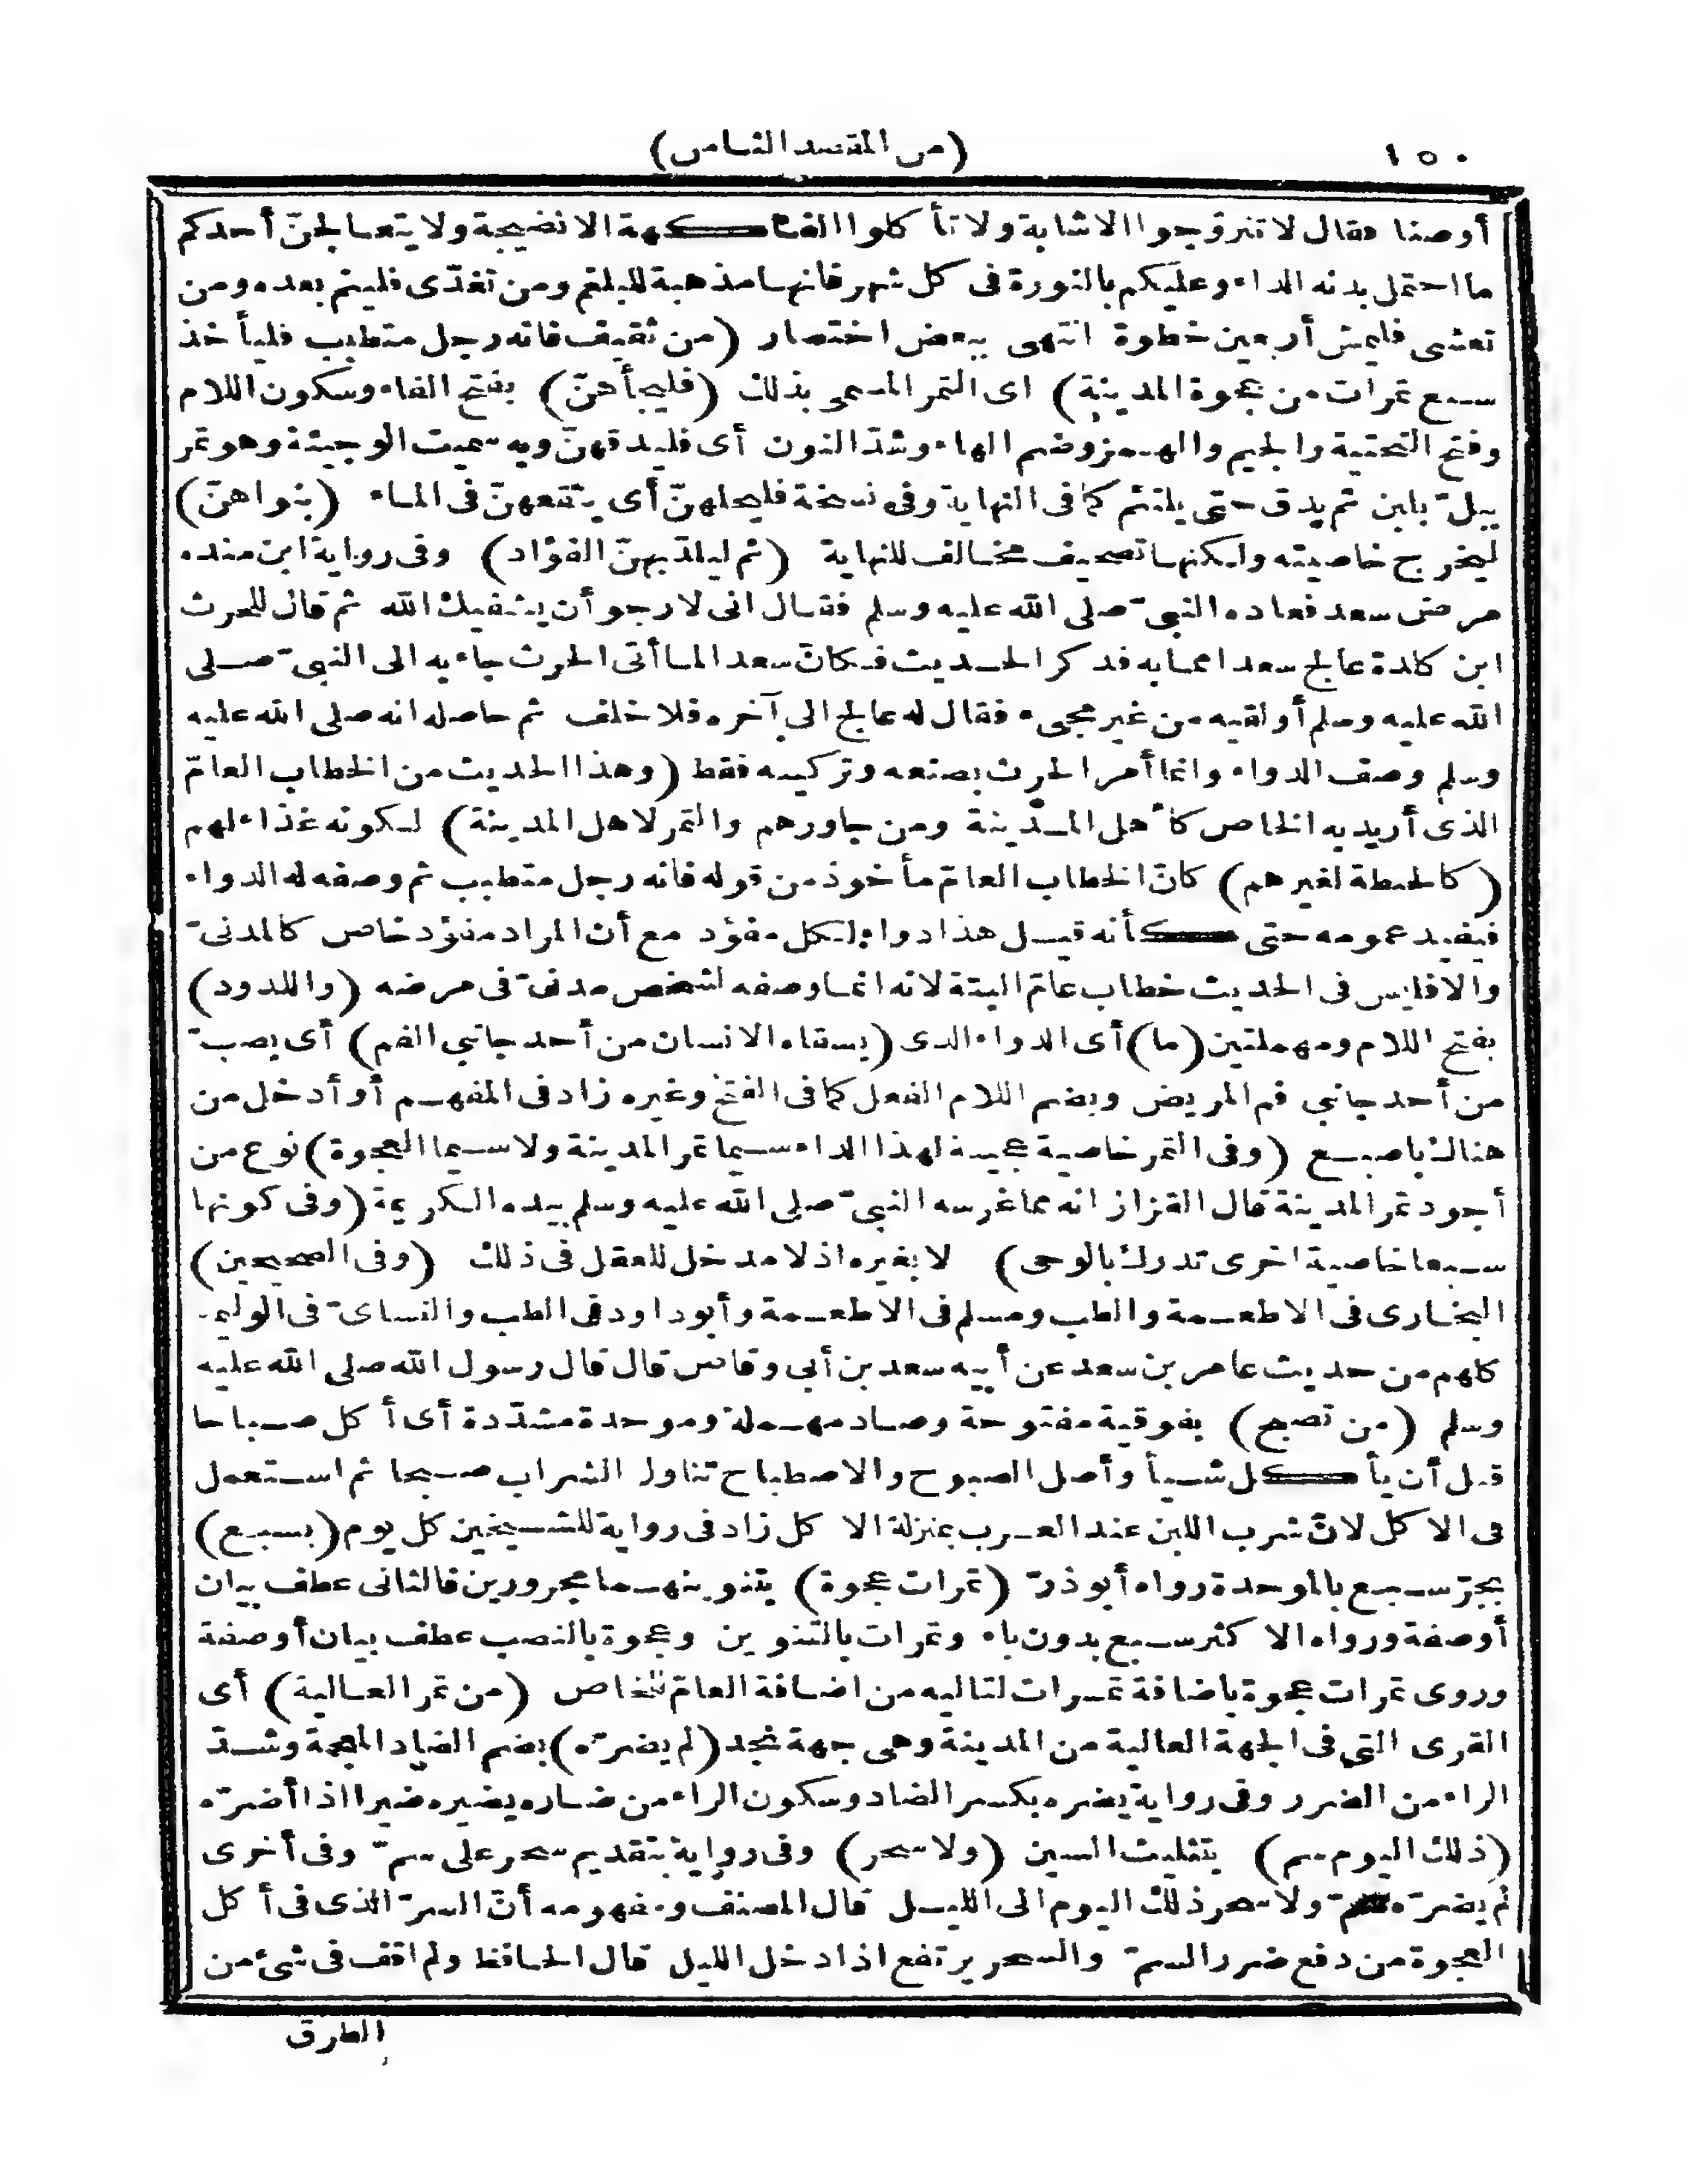 ١٥٠
(من المقصد الثامن)
أوصنا فقال لا تتزوّجوا الاشابة ولا تأكلوا الفاكهة الا نضيجة ولا يتعالجنّ أحدكم
ما احتمل بدنه الداء وعليكم بالنورة فى كل شهر فانها مذهبة للبلغم ومن تغدّى فلينم بعده ومن
تعشى فليمش أربعين خطوة انتهى ببعض اختصار (من ثقيف فانه رجل متطبب فليأخذ
سبع تمرات من عجوة المدينة) اى التمر المسمى بذلك (فليجأهنّ) بفتح الفاء وسكون اللام
وفتح التحتية والجيم والهمز وضم الهاء وشدّ النون أى فليدقهنّ وبه سميت الوجيئة وهو تمر
يبلّ بلبن ثم يدق حتى يلتئم كما فى النهاية وفى نسخة فليجلهنّ أى ينقعهنّ فى الماء (بنواهنّ)
ليخرج خاصيته ولكنها تصحيف مخالف للنهاية (ثم ليلدّ بهنّ الفؤاد) وفى رواية ابن منده
مرض سعد فعاده النبىّ صلى الله عليه وسلم فقال انى لارجو أن يشفيك الله ثم قال للحرث
ابن كلدة عالج سعدا مما به فذكر الحديث فكانّ سعدا لما أتى الحرث جاء به الى النبىّ صلى
الله عليه وسلم أو لقيه من غير مجىء فقال له عالج الى آخره فلا خلف ثم حاصله انه صلى الله عليه
وسلم وصف الدواء وانما أمر الحرث بصنعه وتركيبه فقط (وهذا الحديث من الخطاب العامّ
الذى أريد به الخاص كأهل المدينة ومن جاورهم والتمر لاهل المدينة) لكونه غذاء لهم
(كالحنطة لغيرهم) كانّ الخطاب العامّ مأخوذ من قوله فانه رجل متطبب ثم وصفه له الدواء
فيفيد عمومه حتى كأنه قيل هذا دواء لكل مفؤد مع أن المراد مفؤد خاص كالمدنىّ
والا فليس فى الحديث خطاب عامّ البتة لانه انما وصفه لشخص مدنىّ فى مرضه (واللدود)
بفتح اللام ومهملتين (ما) أى الدواء الذى (يسقاه الانسان من أحد جانبى الفم) أى يصبّ
من أحد جانبى فم المريض وبضم اللام الفعل كما فى الفتح وغيره زاد فى المفهم أو أدخل من
هناك باصبع (وفى التمر خاصية عجيبة لهذا الداء سيما تمر المدينة ولا سيما العجوة) نوع من
أجود تمر المدينة قال القزاز انه مما غرسه النبىّ صلى الله عليه وسلم بيده الكريمة (وفى كونها
سبعا خاصية اخرى تدرك بالوحى) لا بغيره اذ لا مدخل للعقل فى ذلك (وفى الصحيحين)
البخارى فى الاطعمة والطب ومسلم فى الاطعمة وأبو داود فى الطب والنساىّ فى الوليمة
كلهم من حديث عامر بن سعد عن أبيه سعد بن أبي وقاص قال قال رسول الله صلى الله عليه
وسلم (من تصبح) بفوقية مفتوحة وصاد مهملة وموحدة مشدّدة أى أكل صباحا
قبل أن يأكل شيأ وأصل الصبوح والاصطباح تناول الشراب صبحا ثم استعمل
فى الاكل لانّ شرب اللبن عند العرب بمنزلة الاكل زاد فى رواية للشيخين كل يوم (بسبع)
بجرّ سبع بالموحدة رواه أبو ذرّ (تمرات عجوة) بتنوينهما مجرورين فالثانى عطف بيان
أو صفة ورواه الاكثر سبع بدون باء وتمرات بالتنوين وعجوة بالنصب عطف بيان أو صفة
وروى تمرات عجوة باضافة تمرات لتاليه من اضافة العامّ للخاص (من تمر العالية) أى
القرى التى فى الجهة العالية من المدينة وهى جهة نجد (لم يضرّه) بضم الضاد المعجمة وشدّ
الراء من الضرر وفى رواية يضره بكسر الضاد وسكون الراء من ضاره يضيره ضيرا اذا أضرّه
(ذلك اليوم سم) بتثليث السين (ولا سحر) وفى رواية بتقديم سحر على سمّ وفى أخرى
لم يضرّه سمّ ولا سحر ذلك اليوم الى الليل قال المصنف ومفهومه أنّ السرّ الذى فى أكل
العجوة من دفع ضرر السمّ والسحر يرتفع اذا دخل الليل قال الحافظ ولم اقف فى شئ من
الطرق